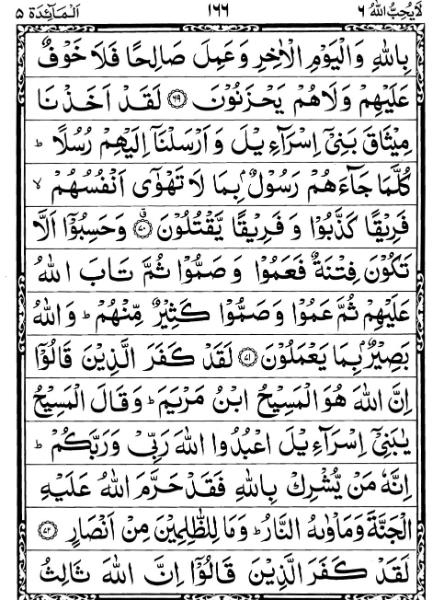 لَا يُحِبُّ اللّٰهُ ٦ ١٦٦ اَلْمَآئِدَة ٥
بِاللّٰهِ وَالْيَوْمِ الْاٰخِرِ وَعَمِلَ صَالِحًا فَلَا خَوْفٌ
عَلَيْهِمْ وَلَاهُمْ يَحْزَنُوْنَ ﴿٦٩﴾ لَقَدْ اَخَذْنَا
مِيْثَاقَ بَنِيْۤ اِسْرَآءِيْلَ وَاَرْسَلْنَاۤ اِلَيْهِمْ رُسُلًا ؕ
كُلَّمَا جَآءَهُمْ رَسُوْلٌۢ بِمَا لَا تَهْوٰۤى اَنْفُسُهُمْ ۙ
فَرِيْقًا كَذَّبُوْا وَفَرِيْقًا يَّقْتُلُوْنَ ﴿٧٠﴾ وَحَسِبُوْۤا اَلَّا
تَكُوْنَ فِتْنَةٌ فَعَمُوْا وَصَمُّوْا ثُمَّ تَابَ اللّٰهُ
عَلَيْهِمْ ثُمَّ عَمُوْا وَصَمُّوْا كَثِيْرٌ مِّنْهُمْ ؕ وَاللّٰهُ
بَصِيْرٌۢ بِمَا يَعْمَلُوْنَ ﴿٧١﴾ لَقَدْ كَفَرَ الَّذِيْنَ قَالُوْۤا
اِنَّ اللّٰهَ هُوَ الْمَسِيْحُ ابْنُ مَرْيَمَ ؕ وَقَالَ الْمَسِيْحُ
يٰبَنِيْۤ اِسْرَآءِيْلَ اعْبُدُوا اللّٰهَ رَبِّيْ وَرَبَّكُمْ ؕ
اِنَّهٗ مَنْ يُّشْرِكْ بِاللّٰهِ فَقَدْ حَرَّمَ اللّٰهُ عَلَيْهِ
الْجَنَّةَ وَمَاْوٰىهُ النَّارُ ؕ وَمَا لِلظّٰلِمِيْنَ مِنْ اَنْصَارٍ ﴿٧٢﴾
لَقَدْ كَفَرَ الَّذِيْنَ قَالُوْۤا اِنَّ اللّٰهَ ثَالِثُ